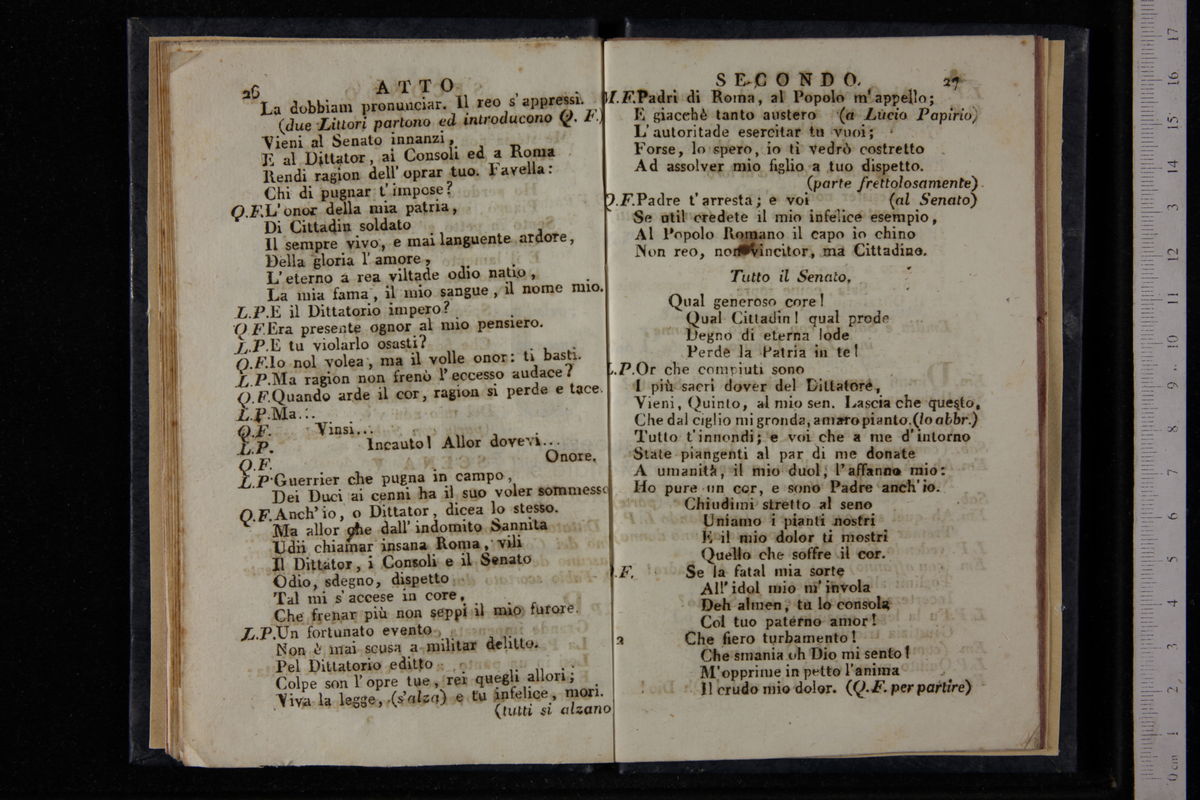 26
ATTO
La dobbiam pronunciar. Il reo s'appressi.
(due Littori partono ed introducono Q. F.)
Vieni al Senato innanzi,
E al Dittator, ai Consoli ed a Roma
Rendi ragion dell' oprar tuo. Favella:
Chi di pugnar t'impose?
Q.F.L'onor della mia patria,
Di Cittadin soldato
Il sempre vivo, e mai languente ardore,
Della gloria l'amore,
L'eterno a rea viltade odio natio,
La mia fama, il mio sangue, il nome mio.
L.P.E il Dittatorio impero?
Q F.Era presente ognor al mio pensiero.
L.P.E tu violarlo osasti?
Q.F.Io nol volea, ma il volle onor: ti basti.
L.P.Ma ragion non frenò l'eccesso audace?
Q.F.Quando arde il cor, ragion si perde e tace.
L.P.Ma...
Q.F. Vinsi...
L.P. Incauto! Allor dovevi...
Q.F. Onore.
L.P.Guerrier che pugna in campo,
Dei Duci ai cenni ha il suo voler sommesso
Q.F.Anch'io, o Dittator, dicea lo stesso.
Ma allor che dall'indomito Sannita
Udii chiamar insana Roma, vili
Il Dittator, i Consoli e il Senato
Odio, sdegno, dispetto
Tal mi s'accese in core,
Che frenar più non seppi il mio furore.
L.P.Un fortunato evento
Non è mai scusa a militar delitto.
Pel Dittatorio editto
Colpe son l'opre tue, rei quegli allori;
Viva la legge, (s'alza) e tu infelice, mori.
(tutti si alzano
SECONDO.
27
M.F.Padri di Roma, al Popolo m'appello;
E giacchè tanto austero (a Lucio Papirio)
L'autoritade esercitar tu vuoi;
Forse, lo spero, io ti vedrò costretto
Ad assolver mio figlio a tuo dispetto.
(parte frettolosamente)
Q.F.Padre t'arresta; e voi (al Senato)
Se util credete il mio infelice esempio,
Al Popolo Romano il capo io chino
Non reo, non vincitor, ma Cittadino.
Tutto il Senato,
Qual generoso core!
Qual Cittadin! qual prode
Degno di eterna lode
Perde la Patria in te!
L.P.Or che compiuti sono
I più sacri dover del Dittatore,
Vieni, Quinto, al mio sen. Lascia che questo,
Che dal ciglio mi gronda, amaro pianto. (lo abbr.)
Tutto t'innondi; e voi che a me d'intorno
State piangenti al par di me donate
A umanità, il mio duol, l'affanno mio:
Ho pure un cor, e sono Padre anch'io.
Chiudimi stretto al seno
Uniamo i pianti nostri
E il mio dolor ti mostri
Quello che soffre il cor.
Q.F. Se la fatal mia sorte
All'idol mio m'invola
Deh almen, tu lo consola
Col tuo paterno amor!
a 2 Che fiero turbamento!
Che smania oh Dio mi sento!
M'opprime in petto l'anima
Il crudo mio dolor. (Q.F. per partire)